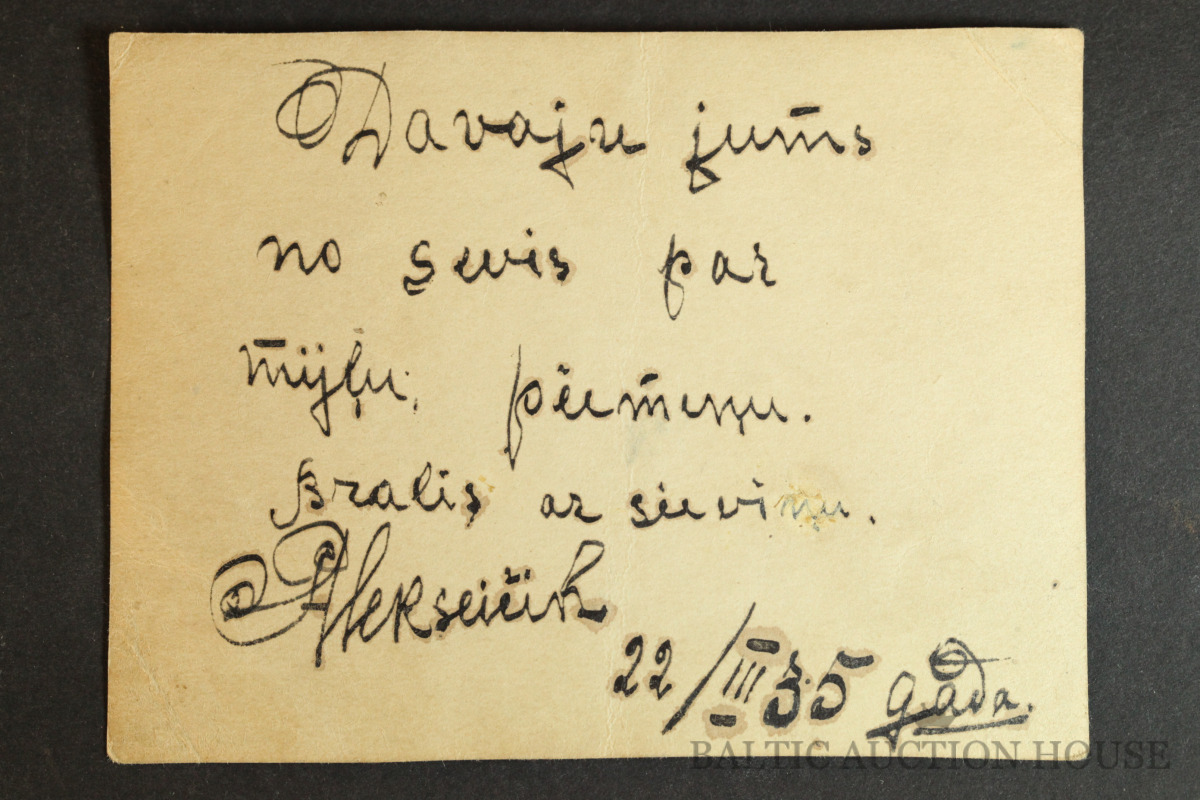 Davaju jums
no sevis par
mijļu, pieemeņu.
Bralis ar sieviņu.
Alekseičik
22/III 35 gada.
BALTIC AUCTION HOUSE